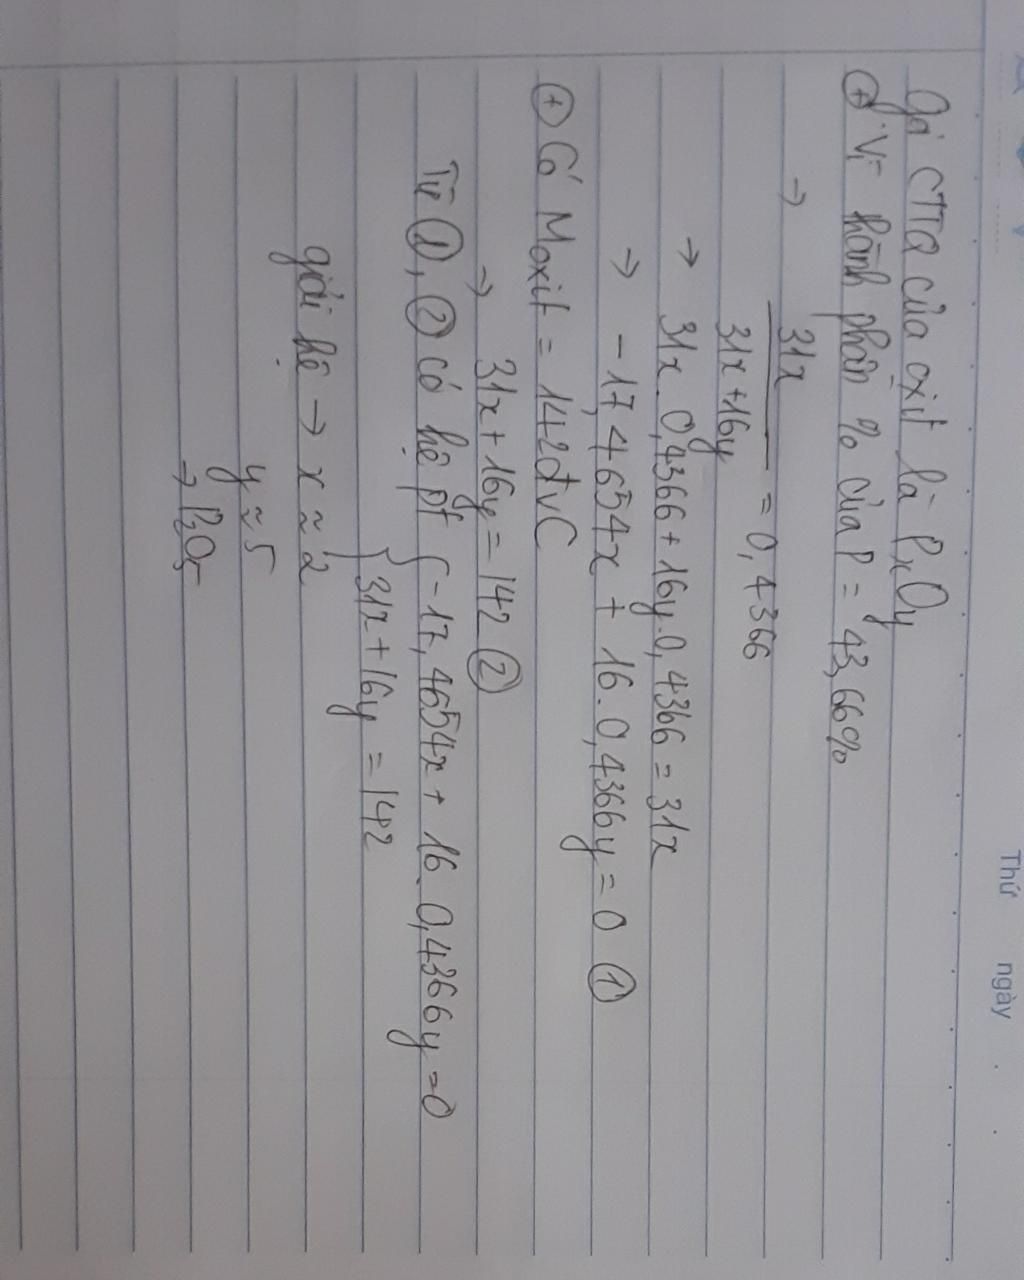 Thứ ngày
gọi CTTQ của oxit là PxOy
+ Vì thành phần % của P = 43,66%
→ 31x / 31x+16y = 0,4366
→ 31x . 0,4366 + 16y.0,4366 = 31x
→ -17,4654x + 16.0,4366y = 0 ①
+ Có Moxit = 142đvC
→ 31x + 16y = 142 ②
Từ ①, ② có hệ pt { -17,4654x + 16.0,4366y = 0
31x + 16y = 142
giải hệ → x ≈ 2
y ≈ 5
→ P2O5